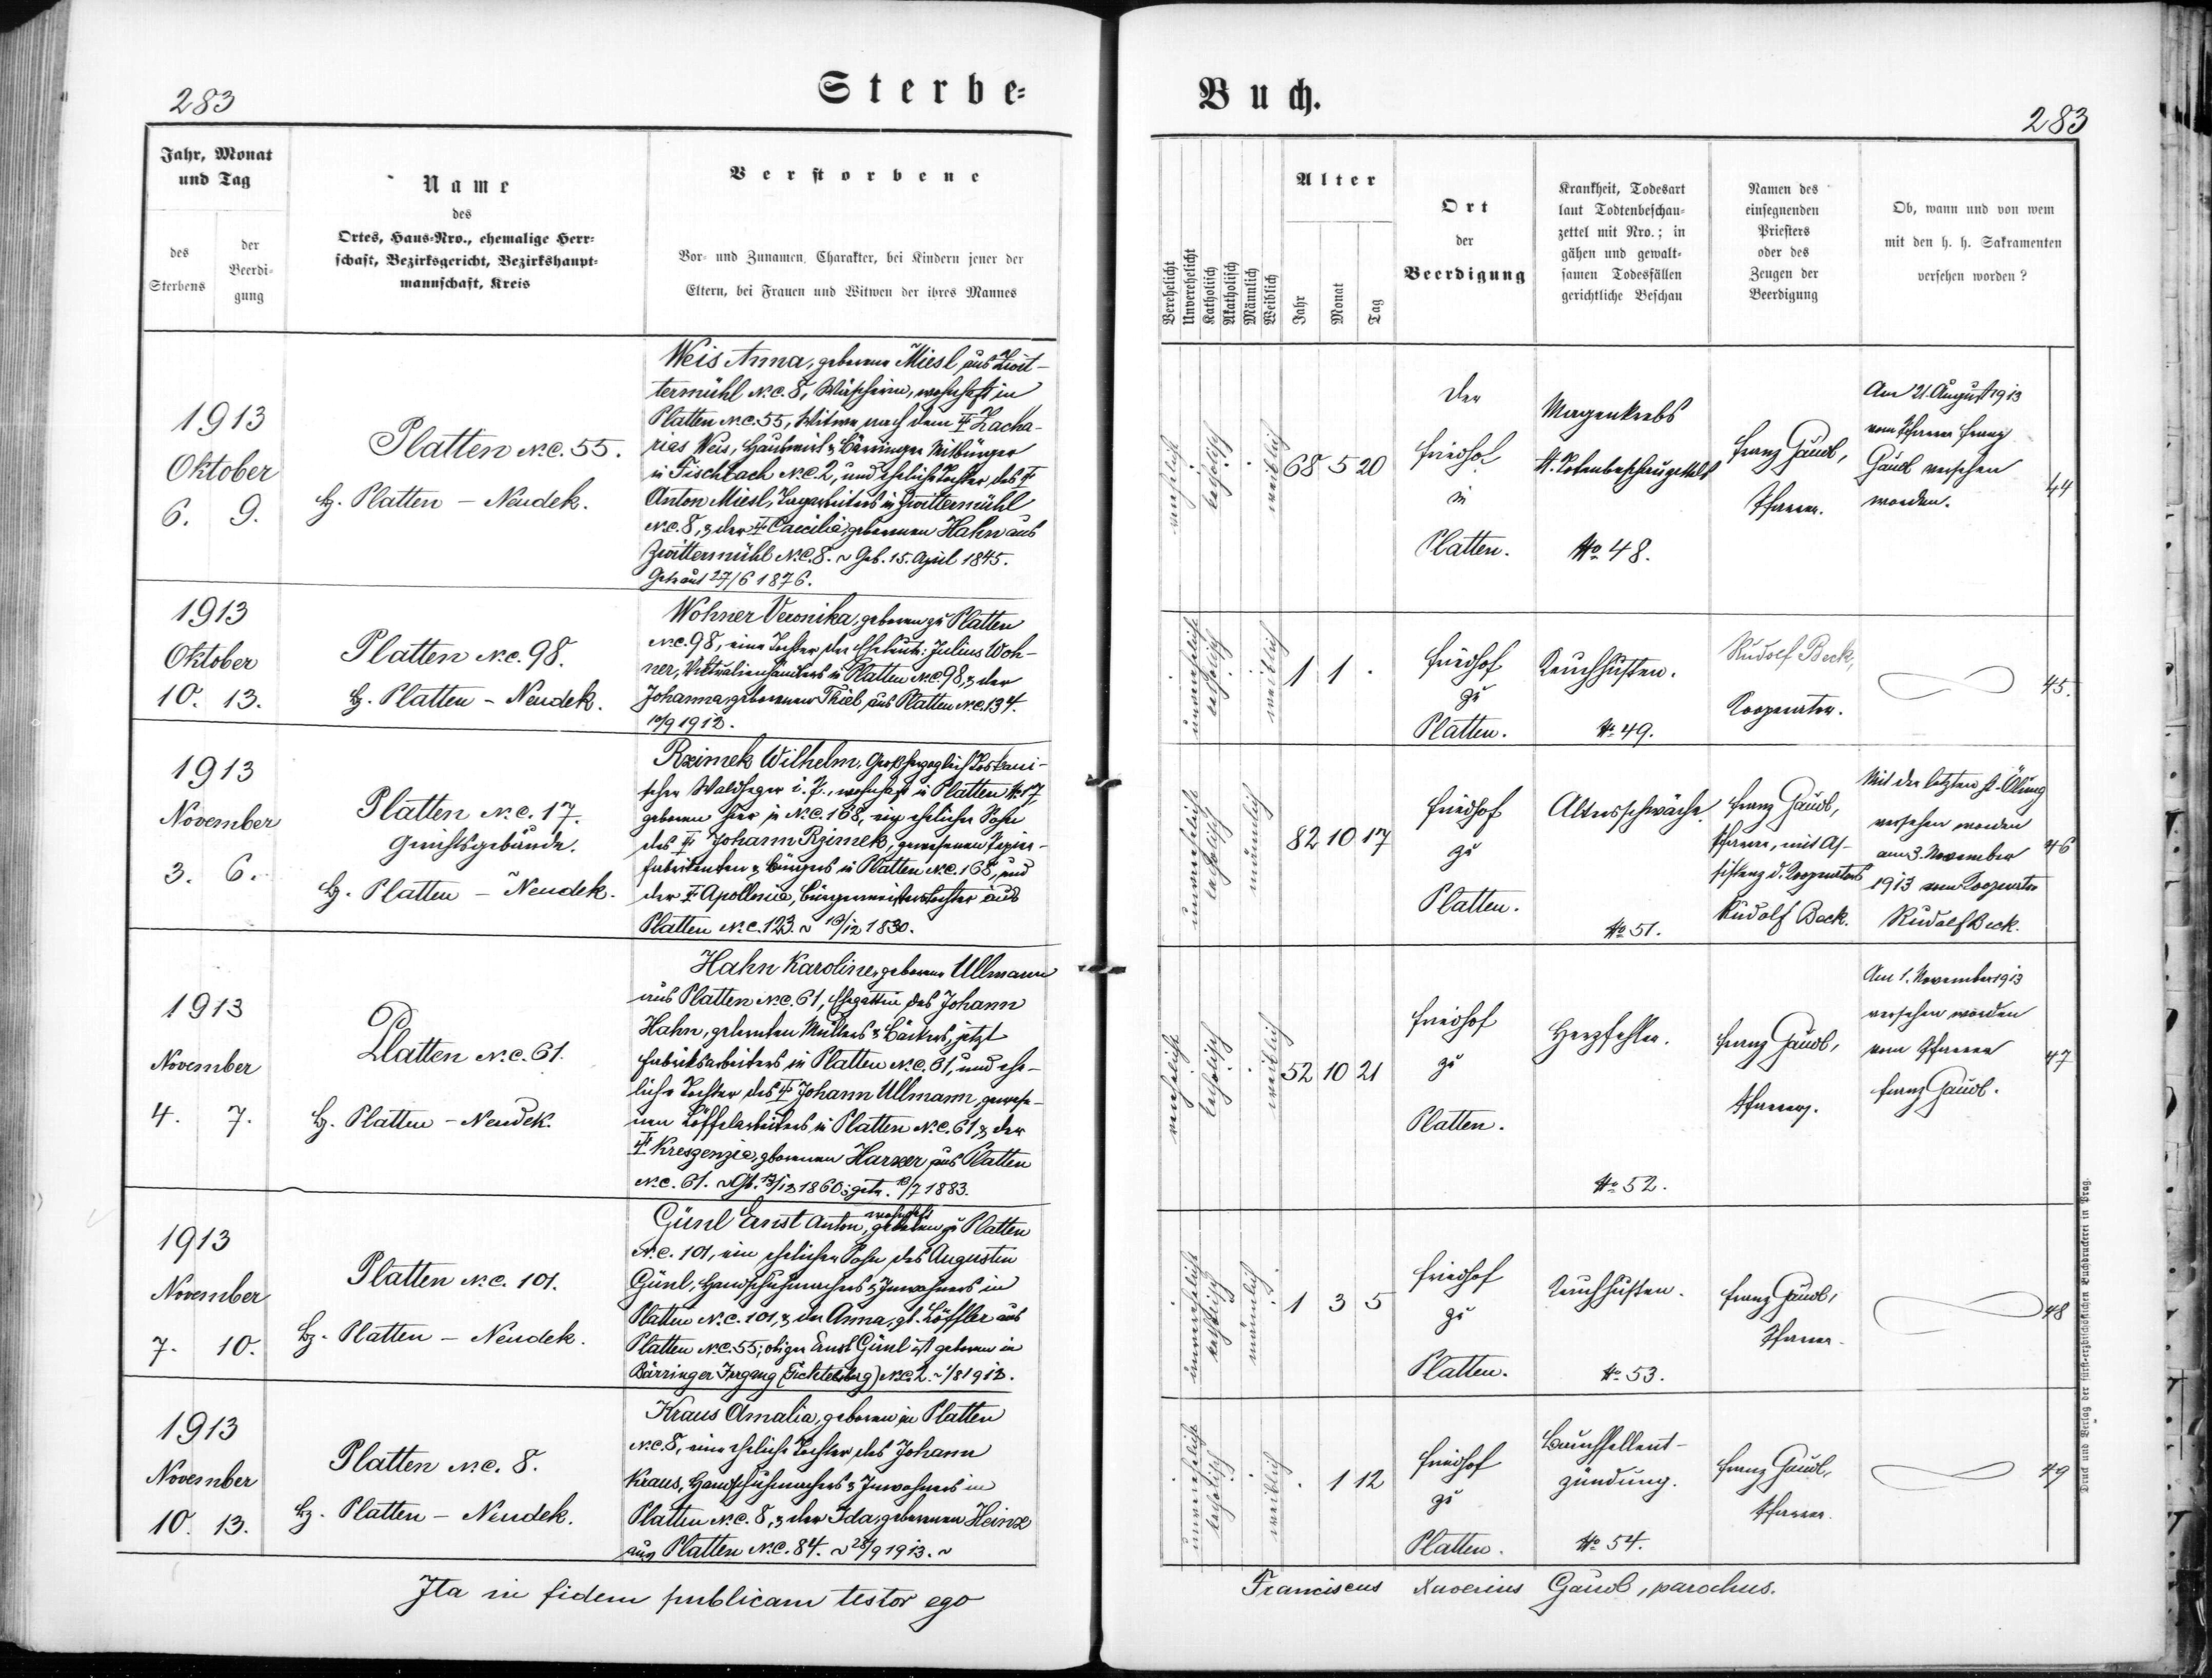 283
Sterbe=
Jahr, Monat
und Tag
des
Sterbens
der
Beerdi=
gung
Name
des
Ortes, Haus=Nro., ehemalige Herr=
schaft, Bezirksgericht, Bezirkshaupt=
mannschaft, Kreis
Verstorbene
Vor= und Zunamen, Charakter, bei Kindern jener der
Eltern, bei Frauen und Witwen der ihres Mannes
1913
Oktober
6. 9.
Platten N.C. 55.
Bz. Platten – Neudek.
Weis Anna, geborene Miesl aus Zwit-
termühl N.C. 8, wohnhaft in
Platten N.C. 55, Witwe nach dem † Zacha-
rias Weis, Hauswirt & Bärringer Mitbürger
in Fischbach N.C. 2, und eheliche Tochter des †
Anton Miesl, Tagarbeiters in Zwittermühl
N.C. 8, & der † Caecilia, geborenen Hahn aus
Zwittermühl N.C. 8. ~ Geb. 15. April 1845.
Getraut 27/6 1876.
1913
Oktober
10. 13.
Platten N.C. 98.
Bz. Platten – Neudek.
Wohner Veronika, geboren zu Platten
N.C. 98, eine Tochter der Eheleute: Julius Woh-
ner, Viktualienhändlers in Platten N.C. 98, & der
Johanna, geborenen Thiel aus Platten N.C. 134.
10/9 1912.
1913
November
3. 6.
Platten N.C. 17.
Gerichtsgebäude.
Bz. Platten – Neudek.
Rzimek Wilhelm, Großherzoglich Toskani-
scher Waldheger i. P., wohnhaft in Platten N. 17,
geboren hier in N.C. 168, ein ehelicher Sohn
des † Johann Rzimek, gewesenen Papier-
fabrikanten & Bürgers in Platten N.C. 168, und
der † Apollonia, Bürgermeisterstochter aus
Platten N.C. 123. ~ 16/12 1830.
1913
November
4. 7.
Platten N.C. 61.
Bz. Platten – Neudek.
Hahn Karoline, geborene Ullmann
aus Platten N.C. 61, Ehegattin des Johann
Hahn, gelernten Müllers & Bäckers, jetzt
Fabriksarbeiters in Platten N.C. 61, und ehe-
liche Tochter des † Johann Ullmann, gewese-
nen Löffelarbeiters in Platten N.C. 61, & der
† Kreszenzia, geborenen Harzer aus Platten
N.C. 61. ~ Gb. 13/12 1860; getr. /7 1883.
1913
November
7. 10.
Platten N.C. 101.
Bz. Platten – Neudek.
wohnhaft
Günl Ernst Anton, geboren zu Platten
N.C. 101, ein ehelicher Sohn des Augustin
Günl, Handschuhmachers & Inwohners in
Platten N.C. 101, & der Anna, gb. Löffler aus
Platten N.C. 55; obiger Ernst Günl ist geboren in
Bärringer Irrgang (Fichtelberg) N.C. 2. ~ 1/8 1912.
1913
November
10. 13.
Platten N.C. 8.
Bz. Platten – Neudek.
Kraus Amalia, geboren in Platten
N.C. 8, eine eheliche Tochter des Johann
Kraus, Handschuhmachers & Inwohners in
Platten N.C. 8, & der Ida, geborenen Heinz
aus Platten N.C. 84. ~ 28/9 1913. ~
Ita in fidem publicam testor ego
Buch.
283
Verehelicht
Unverehelicht
Katholisch
Akatholisch
Männlich
Weiblich
Alter
Jahr
Monat
Tag
Ort
der
Beerdigung
Krankheit, Todesart
laut Todtenbeschau=
zettel mit Nro.; in
gähen und gewalt=
samen Todesfällen
gerichtliche Beschau
Namen des
einsegnenden
Priesters
oder des
Zeugen der
Beerdigung
Ob, wann und von wem
mit den h. h. Sakramenten
versehen worden?
verehelicht
katholisch
weiblich
68 5 20
Der
Friedhof
in
Platten.
Magenkrebs
lt. Totenbeschauzettels
No 48.
Franz Gaudl,
Pfarrer.
Am 21. August 1913
vom Pfarrer Franz
Gaudl versehen
worden.
44
unverehelicht
katholisch
weiblich
1 1 .
Friedhof
zu
Platten.
Keuchhusten.
No 49.
Rudolf Beck,
Kooperator.
45.
unverehelicht
katholisch
männlich
82 10 17
Friedhof
zu
Platten.
Altersschwäche.
No 51.
Franz Gaudl,
Pfarrer, mit As-
sistenz d. Kooperators
Rudolf Beck.
Mit der letzten hl. Ölung
versehen worden
am 3. November
1913 vom Kooperator
Rudolf Beck.
46
verehelicht
katholisch
weiblich
52 10 21
Friedhof
zu
Platten.
Herzfehler.
No 52.
Franz Gaudl,
Pfarrer.
Am 1. November 1913
versehen worden
vom Pfarrer
Franz Gaudl.
47
unverehelicht
katholisch
männlich
1 3 5
Friedhof
zu
Platten.
Keuchhusten.
No 53.
Franz Gaudl,
Pfarrer.
48
unverehelicht
katholisch
weiblich
. 1 12
Friedhof
zu
Platten.
Bauchfellent-
zündung.
No 54.
Franz Gaudl,
Pfarrer.
49
Franciscus Xaverius Gaudl, parochus.
Druck und Verlag der fürst=erzbischöflichen Buchdruckerei in Prag.